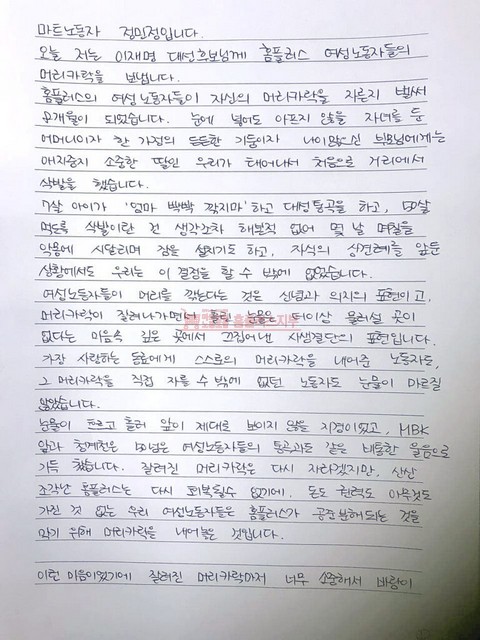 마트노동자 정민정입니다.
오늘 저는 이재명 대선후보님께 홈플러스 여성노동자들의
머리카락을 보냅니다.
홈플러스의 여성노동자들이 자신의 머리카락을 자른지 벌써
개월이 되었습니다. 눈에 넣어도 아프지 않을 자녀를 둔
어머니이자 한 가정의 든든한 기둥이자 나이많으신 부모님에게는
애지중지 소중한 딸인 우리가 태어나서 처음으로 거리에서
삭발을 했습니다.
7살 아이가 '엄마 빡빡 깎지마' 하고 대성통곡을 하고, 50살
먹도록 삭발이란 건 생각조차 해본적 없어 몇 날 며칠을
악몽에 시달리며 잠을 설치기도 하고, 자식의 상견례를 앞둔
상황에서도 우리는 이 결정을 할 수 밖에 없었습니다.
여성노동자들이 머리를 깎는다는 것은 신념과 의지의 표현이고,
머리카락이 잘려나가면서 흘린 눈물은 더이상 물러설 곳이
없다는 마음속 깊은 곳에서 끄집어낸 사생결단의 표현입니다.
가장 사랑하는 동료에게 스스로의 머리카락을 내어준 노동자도,
그 머리카락을 직접 자를 수 밖에 없던 노동자도 눈물이 마르질
않았습니다.
눈물이 흐르고 흘러 앞이 제대로 보이지 않을 지경이었고, MBK
앞과 청계천은 여성노동자들의 통곡과도 같은 비통한 울음으로
가득 찼습니다. 잘려진 머리카락은 다시 자라겠지만, 산산
조각난 홈플러스는 다시 회복될수 없기에, 돈도 권력도 아무것도
가진 것 없는 우리 여성노동자들은 홈플러스가 공중분해되는 것을
막기 위해 머리카락을 내어놓은 것입니다.
이런 마음이었기에 잘려진 머리카락마저 너무 소중해서 바람이